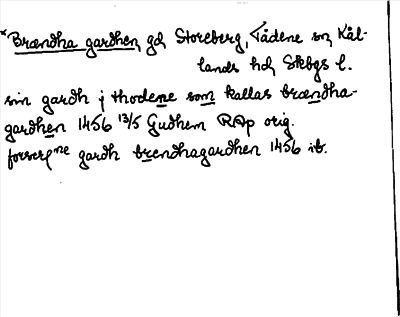 *Brændha gardhen, gd Storeberg, Tådene sn, Kål-
lands hd, Skbgs l.
sin gardh j thodene som kallas brændha-
gardhen 1456 13/5 Gudhem RAp orig.
forscrⁿᵉ gardh brendhagardhen 1456 ib.